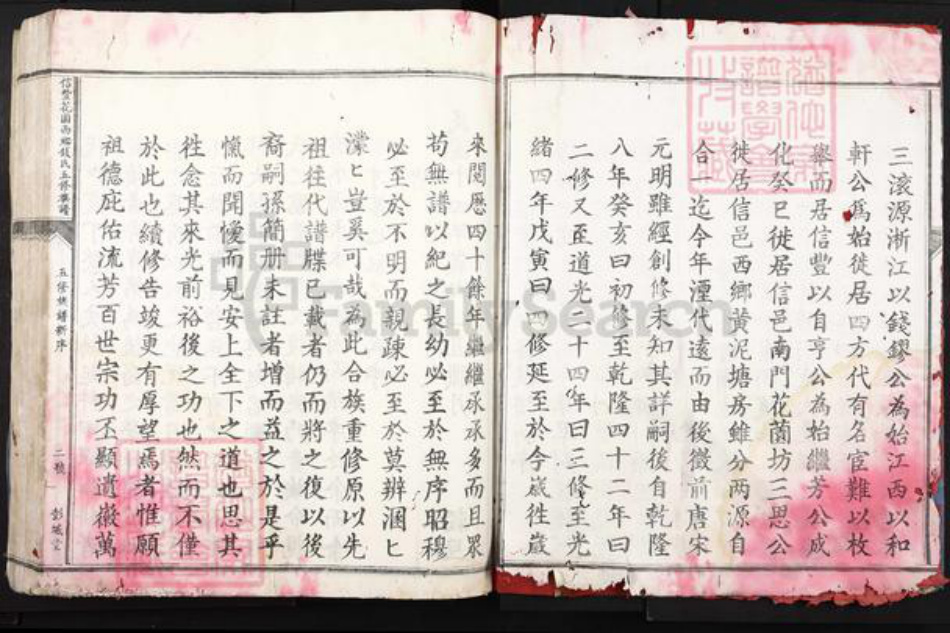 三滾源淅江以錢鏐公為始江西以和
軒公爲始徙居四方代有名宦難以枚
舉而居信豐以自亨公為始繼芳公成
化癸巳徙居信邑南門花園坊三思公
徙居信邑西鄉黄泥塘房雖分两源自
合一迄今年湮代遠而由後徵前唐宋
元明雖經創修未知其詳嗣後自乾隆
八年癸亥曰初修至乾隆四十二年曰
二修又至道光二十四年曰三修至光
緒四年戊寅曰四修延至於今歲徃歲
來閱歷四十餘年繼繼承承多而且眾
苟無譜以紀之長幼必至於無序昭穆
必至於不明而親疎必至於莫辨溷ヒ
濛ヒ豈奚可哉為此合族重修原以先
祖往代譜牒已載者仍而將之復以後
裔嗣孫簡册未註者增而益之於是乎
愾而聞愾而見安上全下之道也思其
徃念其來光前裕後之功也然而不僅
於此也續修告竣更有厚望焉者惟願
祖德庇佑流芳百世宗功丕顯遺徽萬
信豐花園两 錢氏五修族譜
五修族譜新序
二號
彭城堂
FamilySearch